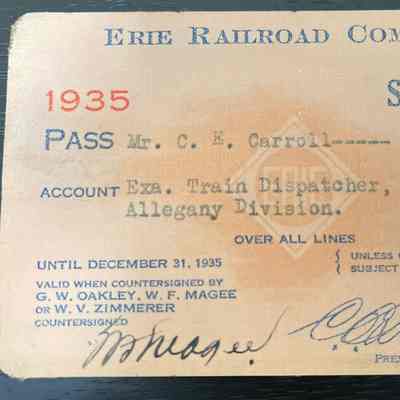 ERIE RAILROAD COM
1935 S
PASS Mr. C. E. Carroll-----
ACCOUNT Exa. Train Dispatcher,
Allegany Division.
OVER ALL LINES
UNTIL DECEMBER 31, 1935 { UNLESS
VALID WHEN COUNTERSIGNED BY SUBJECT
G. W. OAKLEY, W. F. MAGEE
OR W. V. ZIMMERER
COUNTERSIGNED
WF Magee
PRES